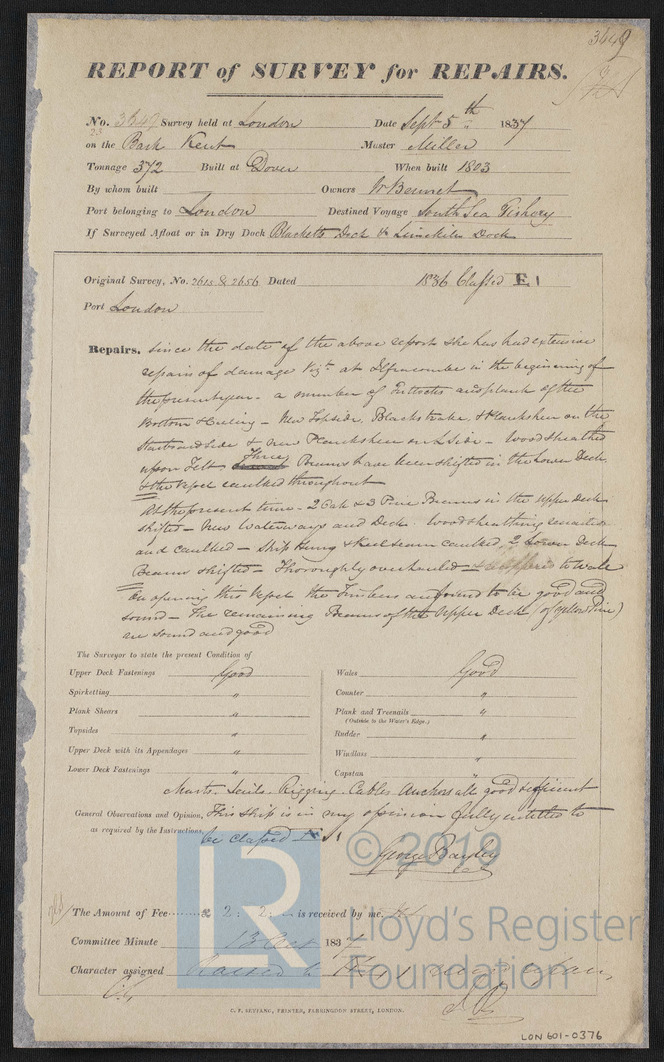 3649
REPORT of SURVEY for REPAIRS.
No. 3649 Survey held at London Date Sept 5th 1837
23
on the Bark Kent Master Miller
Tonnage 372 Built at Dover When built 1803
By whom built Owners Wm Bennet
Port belonging to London Destined Voyage South Sea Fishery
If Surveyed Afloat or in Dry Dock Blacketts Dock & Limekiln Dock
Original Survey, No. 2618 & 2656 Dated 1836 Classed E 1
Port London
Repairs. since the date of the above report she has had extensive
repairs of damage Vizt. at Ilfracombe in the beginning of
the present year - a number of Futtocks and plank of the
Bottom & Ceiling - New Topside, Blackstrake, & Planksheer on the
Starboard side & new Planksheer on L Side - Wood sheathed
upon Felt Three Beams have been shifted in the Lower Deck
& the Vessel caulked throughout
At the present time - 2 Oak & 3 Pine Beams in the Upper Deck
shifted - New Waterways and Deck. Wood sheathing
and caulked - Ship hung & keel seam caulked, 2 Lower Deck
Beams shifted - Thoroughly overhauled - & coppered to wale
On opening this Vessel the Timbers are found to be good and
sound - The remaining Beams of the Upper Deck (of yellow Pine)
are sound and good
The Surveyor to state the present Condition of
Upper Deck Fastenings Good Wales Good
Spirketting " Counter "
Plank Shears " Plank and Treenails "
(Outside to the Water's Edge.)
Topsides " Rudder "
Upper Deck with its Appendages " Windlass "
Lower Deck Fastenings " Capstan "
Masts. Sails. Rigging. Cables. Anchors all good & sufficient
General Observations and Opinion, This ship is in my opinion fully entitled to
as required by the Instructions, be classed 1
George Bayley
The Amount of Fee ........ £ 2 : 2 : - is received by me,
Committee Minute 13 Oct 1837
Character assigned Raised to
C. F. SEYFANG, PRINTER, FARRINGDON STREET, LONDON.
LON 601-0376
LR
© 2019
Lloyd's Register
Foundation